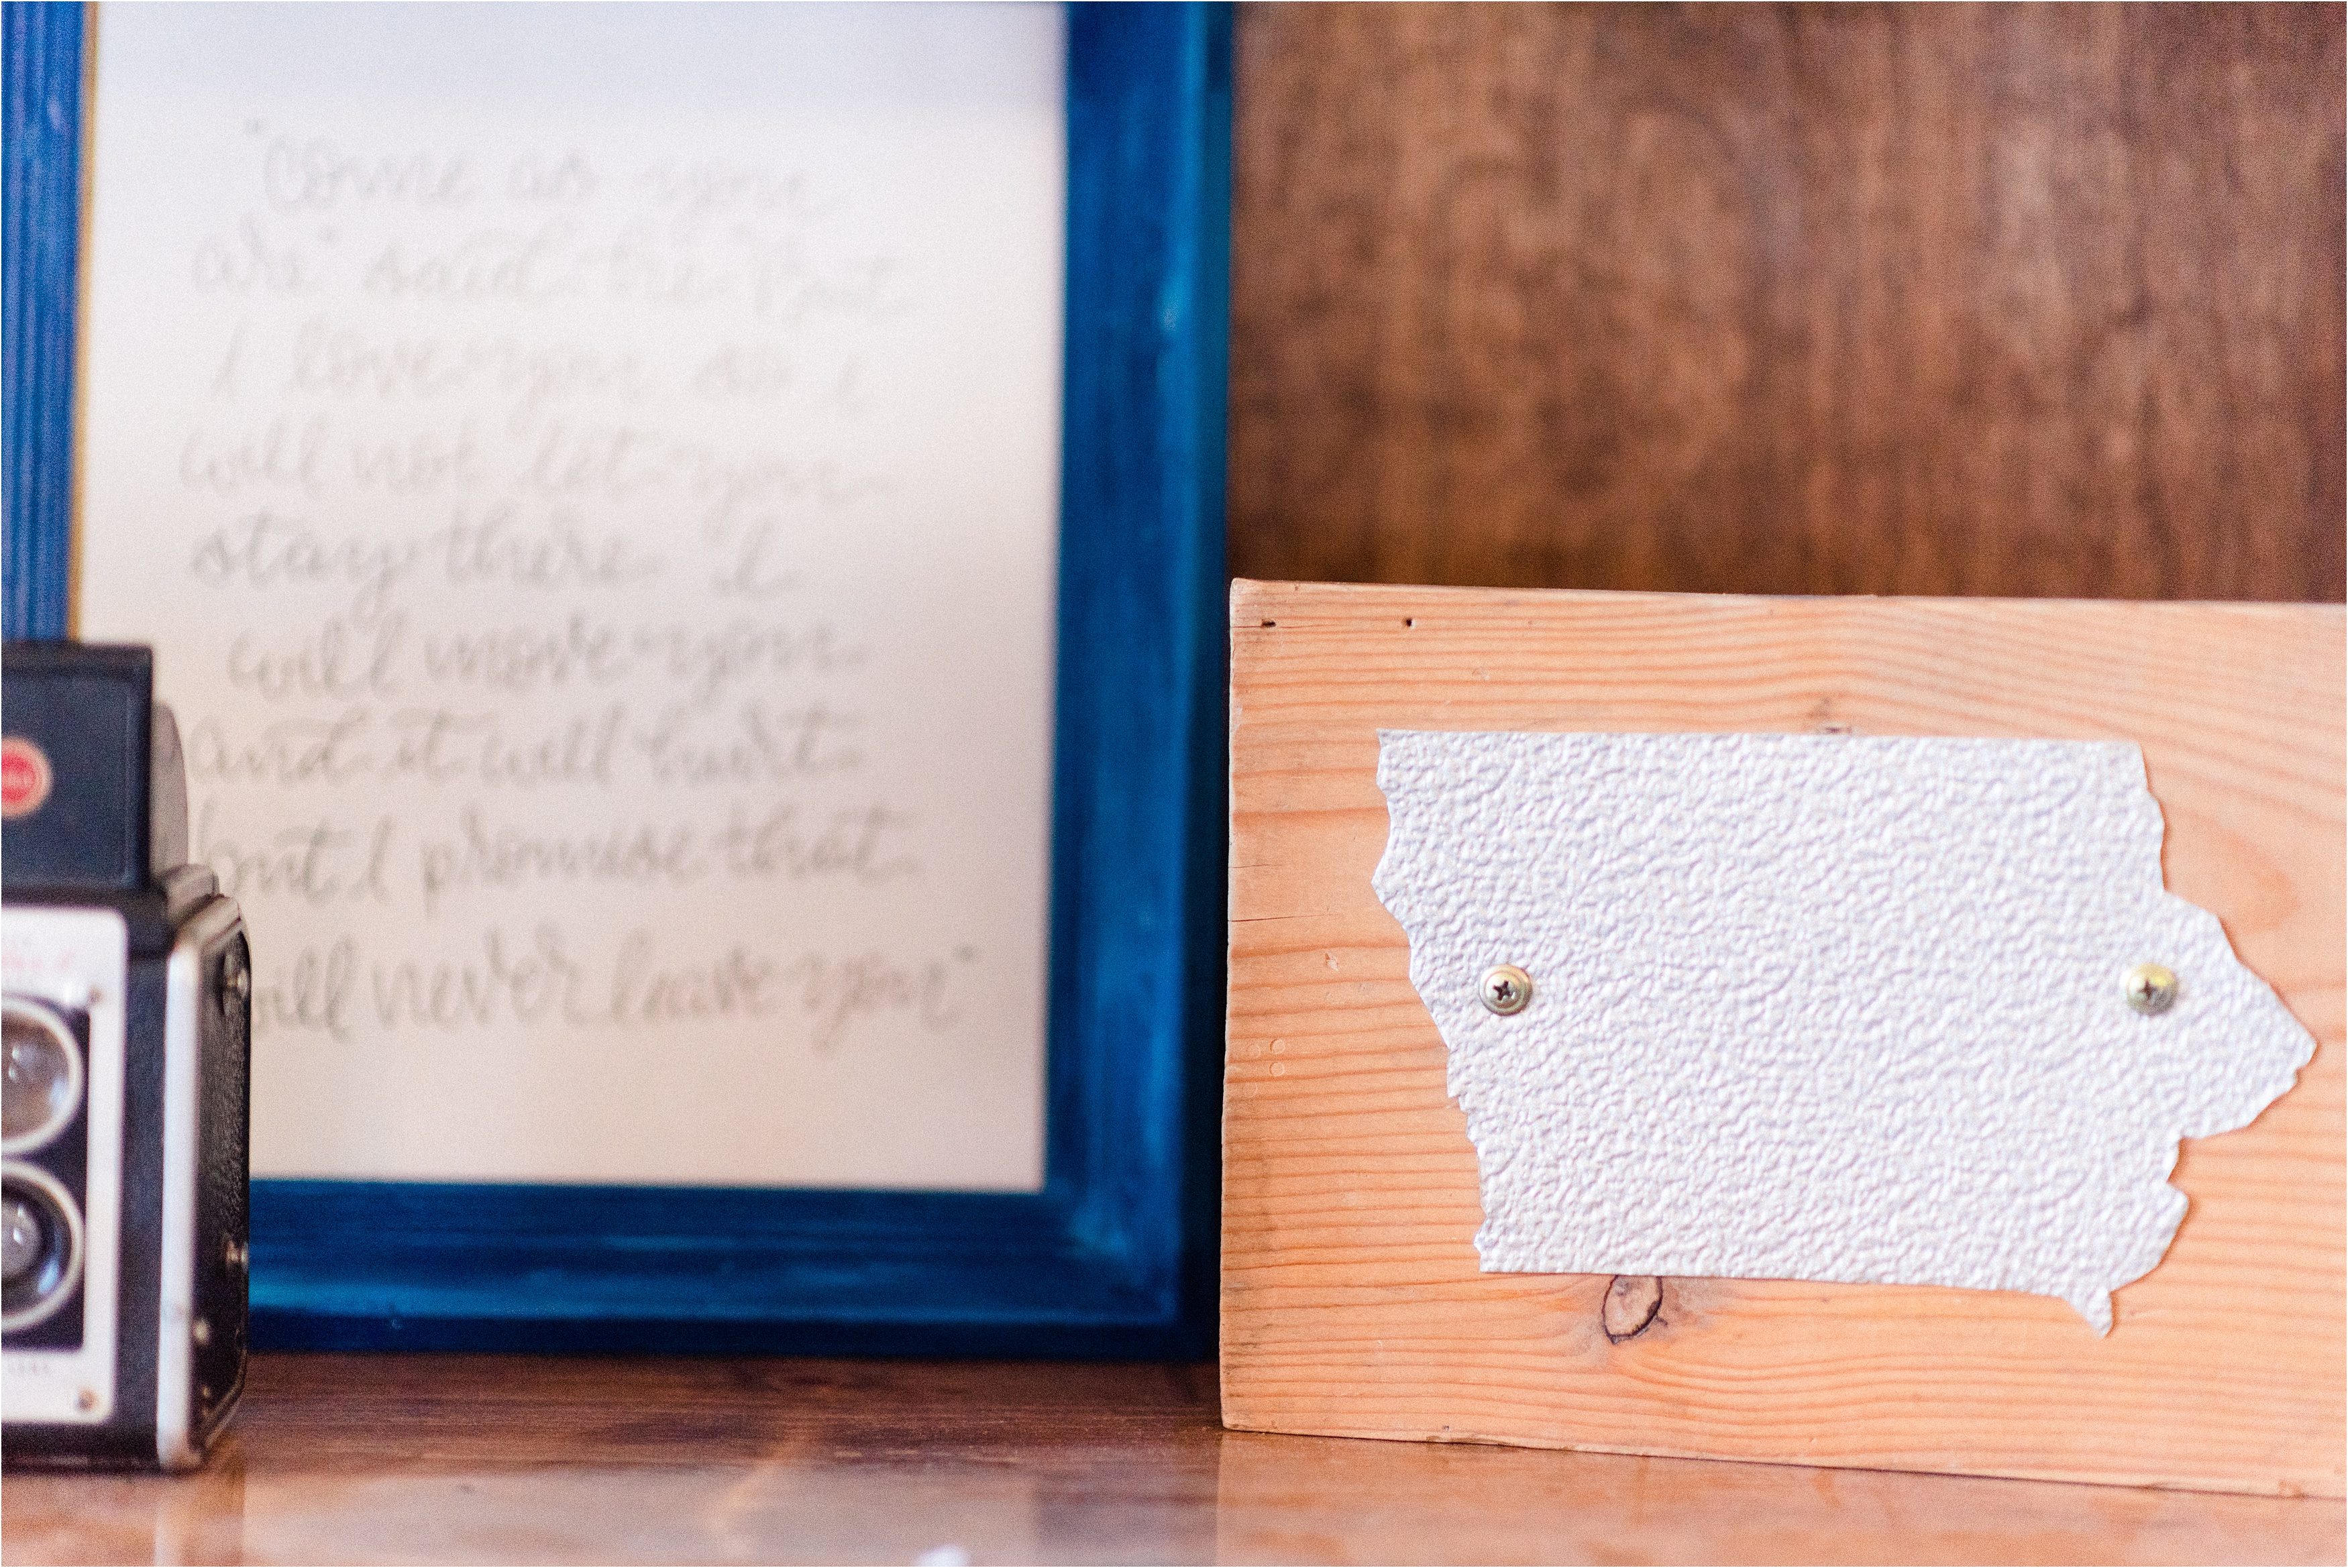 "Come as you
are" said he "but
I love you so I
will not let you
stay there I
will move you
and it will hurt
but I promise that
will never leave you"